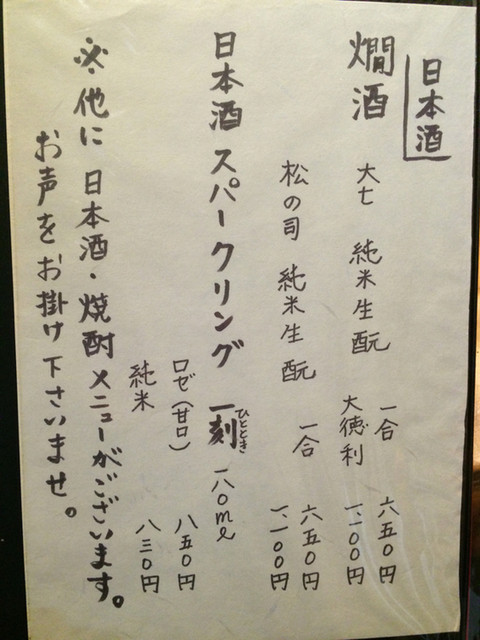 日本酒
燗酒
大七 純米生酛 一合 六五〇円
大徳利 一、一〇〇円
松の司 純米生酛 一合 六五〇円
一、一〇〇円
日本酒スパークリング 一刻 一八〇ml
ひととき
ロゼ(甘口) 八五〇円
純米 八三〇円
※他に日本酒・焼酎メニューがございます。
お声をお掛け下さいませ。